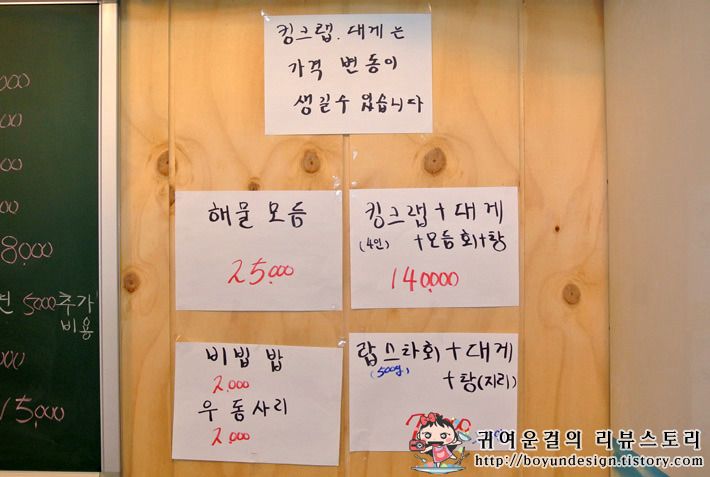 킹크랩. 대게는
가격 변동이
생길수 있습니다
해물 모듬
25,000
킹크랩 + 대게
(4인) +모듬회+탕
140,000
비빔밥
2,000
우동사리
2,000
랍스타회 + 대게
(500g) +탕(지리)
000
00
00
000
8,000
5000 추가
비용
000
15,000
귀여운걸의 리뷰스토리
http://boyundesign.tistory.com